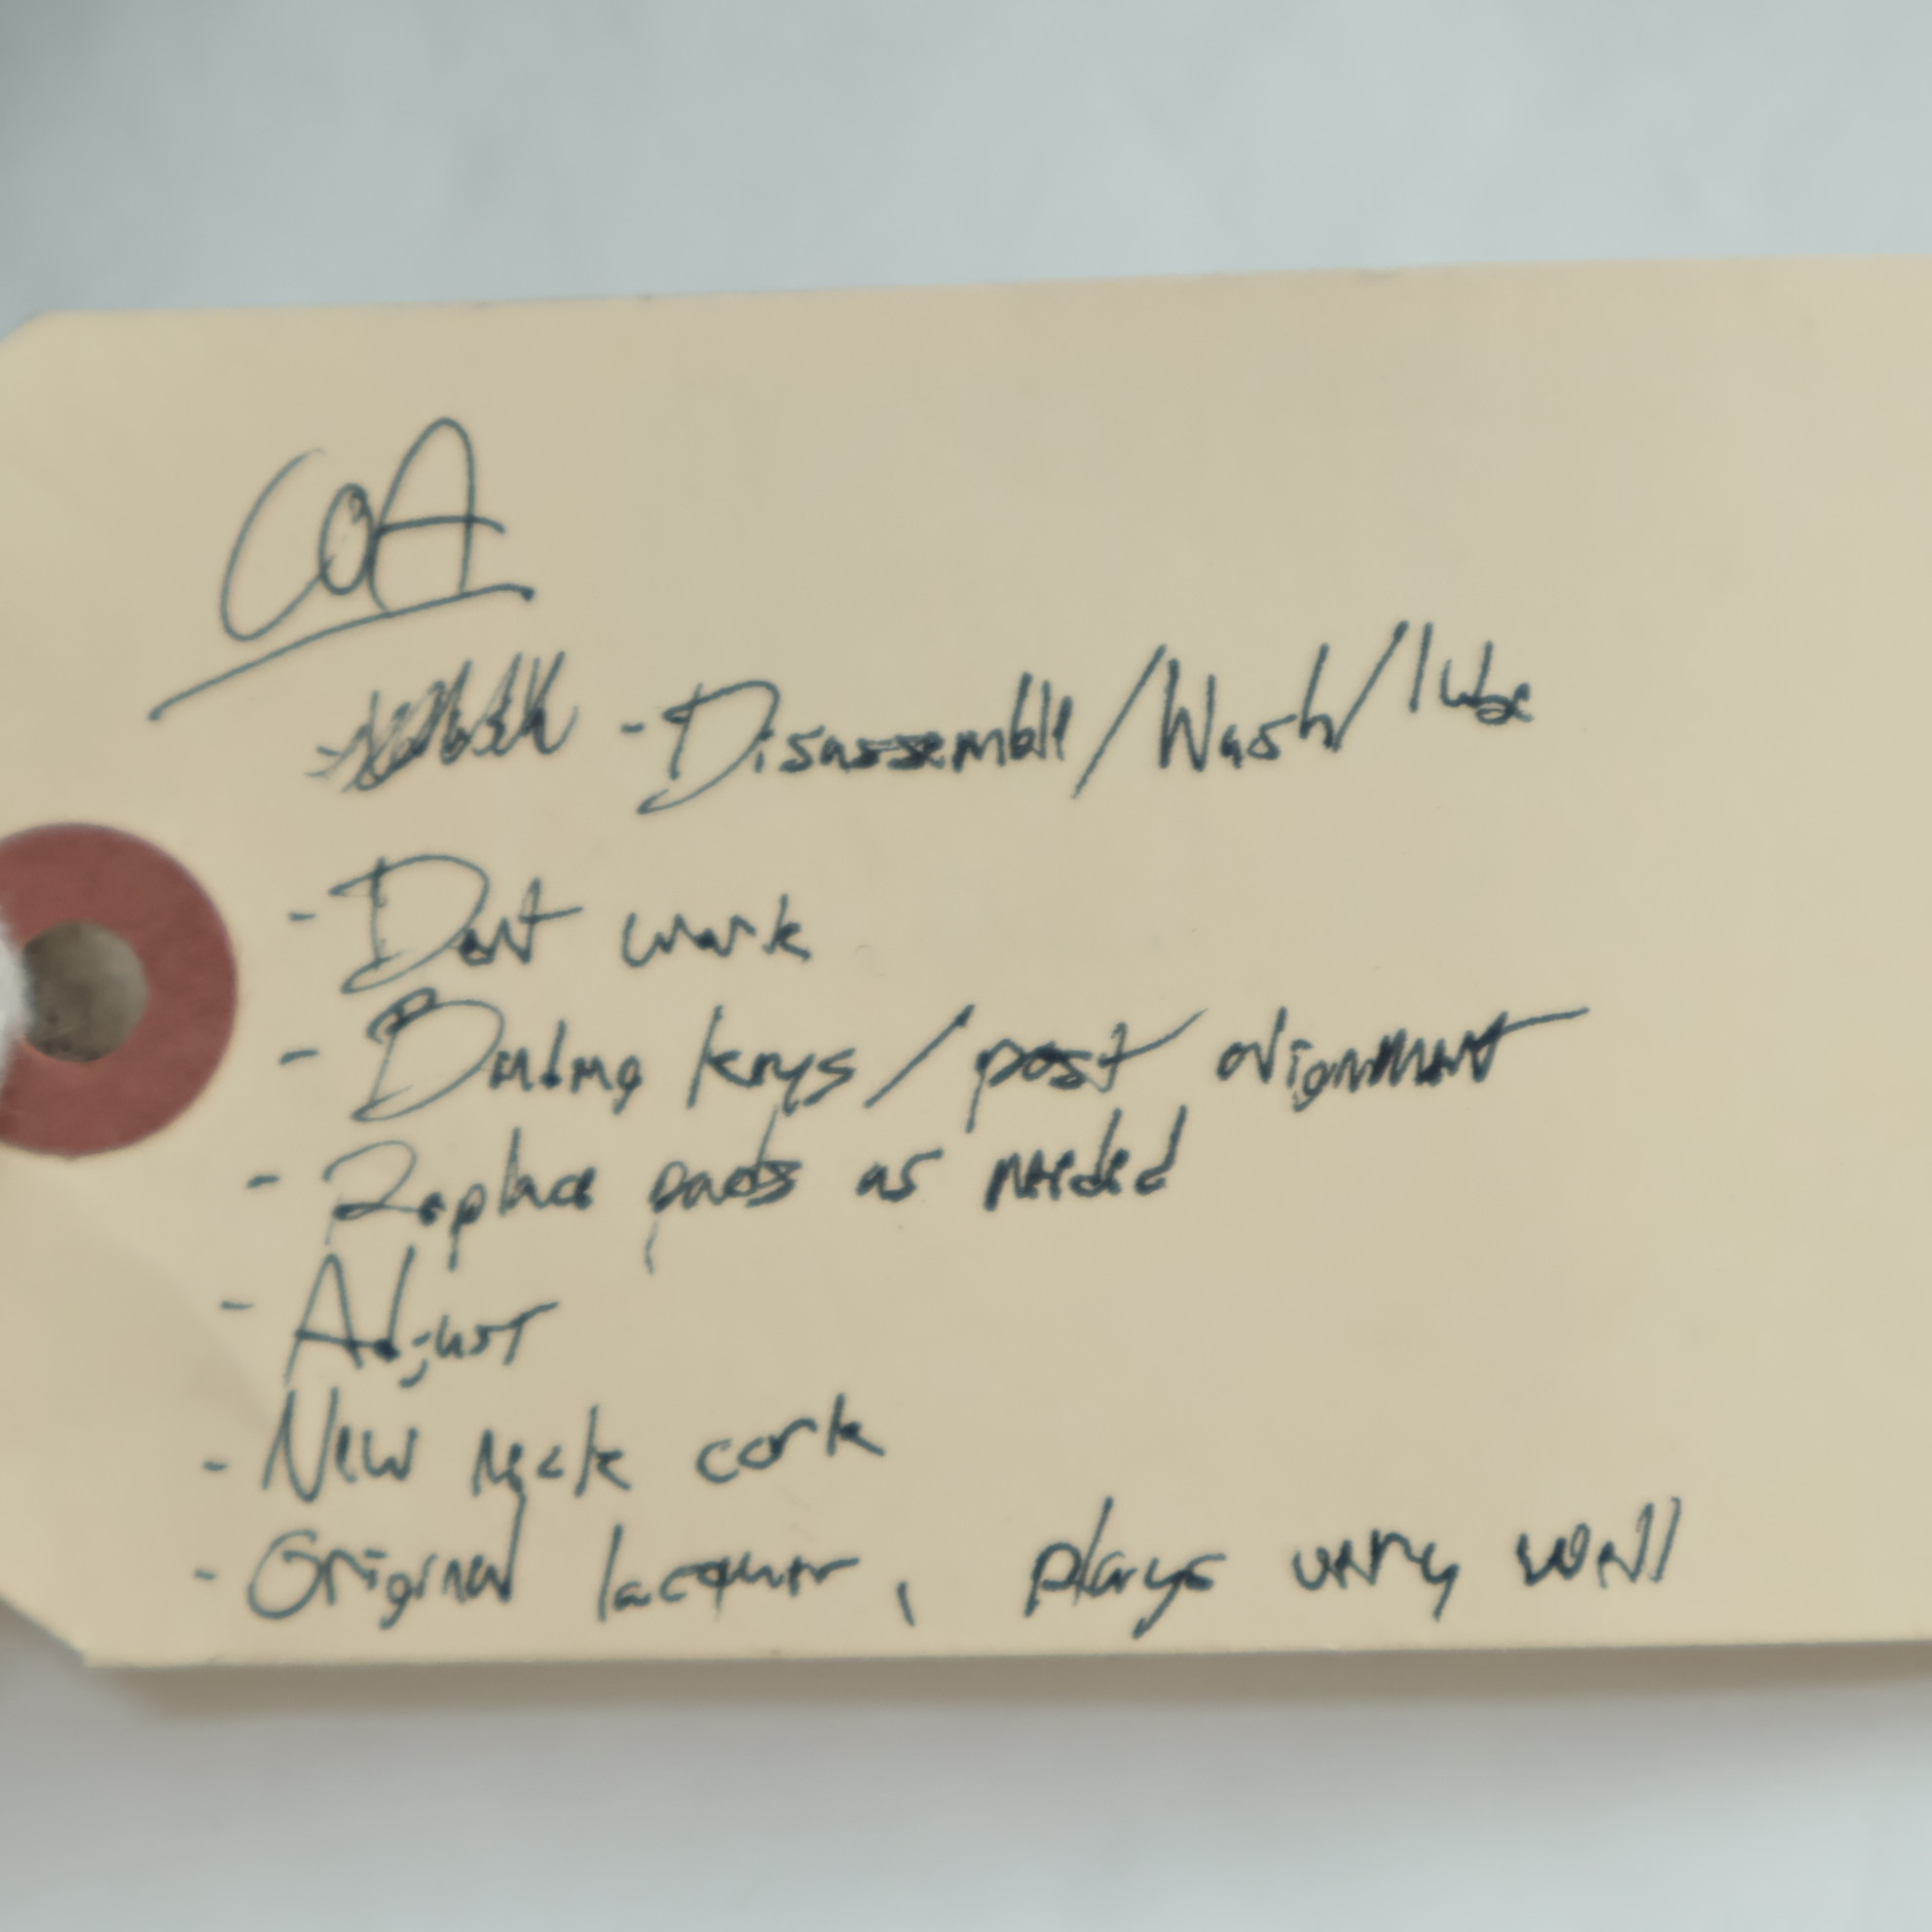 COA
- Disassemble/Wash/lube
- Dent work
- Binding keys/post alignment
- Replace pads as needed
- Adjust
- New neck cork
- Original lacquer, plays very well